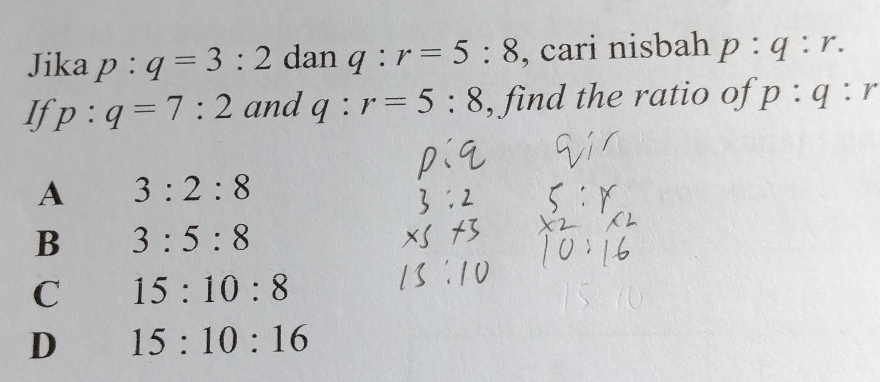 Jika p : q = 3 : 2 dan q : r = 5 : 8, cari nisbah p : q : r.
If p : q = 7 : 2 and q : r = 5 : 8, find the ratio of p : q : r
A 3 : 2 : 8
B 3 : 5 : 8
C 15 : 10 : 8
D 15 : 10 : 16
p : q
3 : 2
×5 ×5
15 : 10
q : r
5 : 8
×2 ×2
10 : 16
15 10